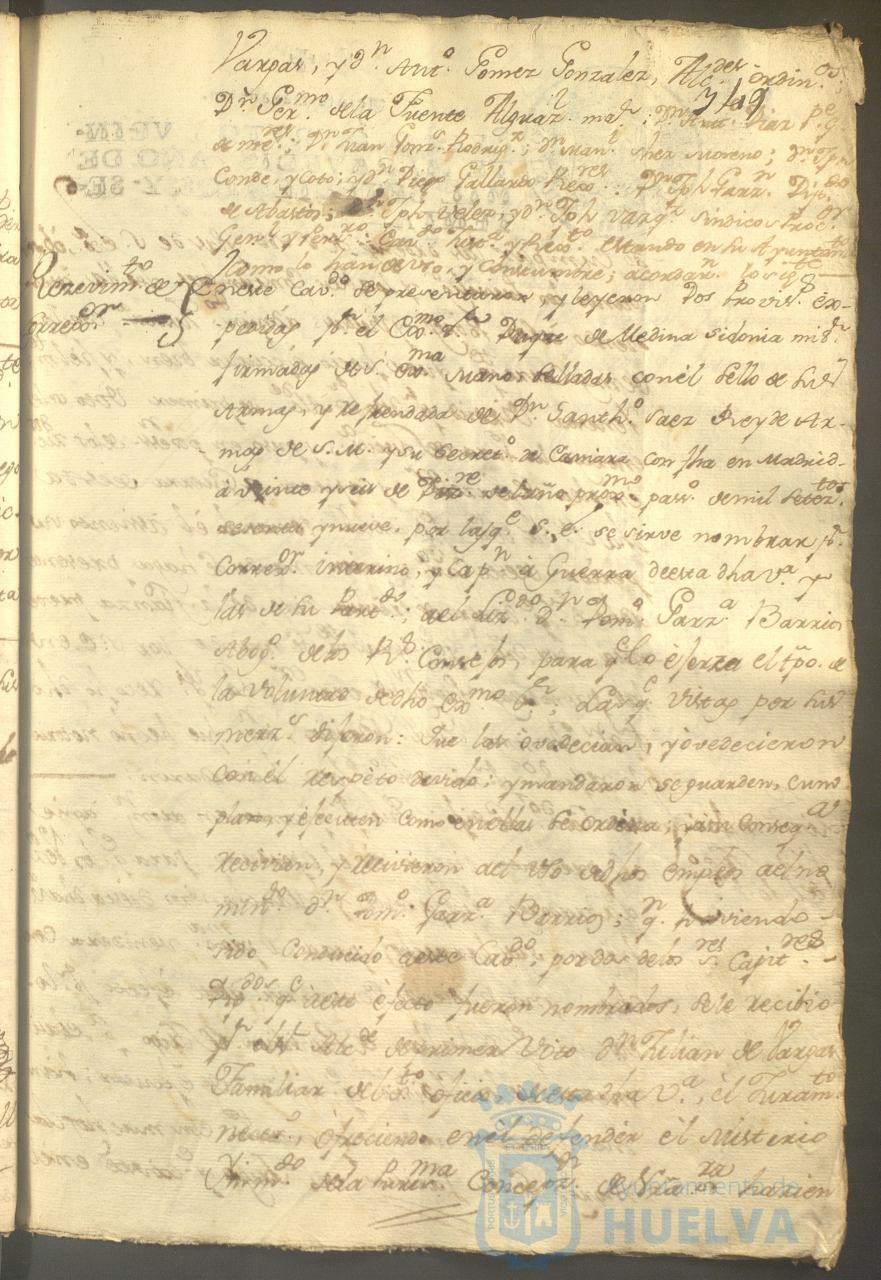 Vargas, y dn. Anto. Gomez Gonzalez, Alcdes. ordinos.;
Dn. Germo. de la Fuente Alguazl. mar.; Dn. Antt. Diaz Pe.
349
de mres; Dn. Juan Gonz. Rodrigz.; dn. Manl. Moreno; dn.
Conde, y Coto; y dn. Diego Gallardo Rexres. Dn. Jph Garzn. Dipdo
de Abastos; Dn. Jph Velez, y dn. Jph Vargs. Sindicos Procor
Genl. y Perso. Cavdo. Justa. y Rexto. estando en su Ayuntamto
Como lo han de vso, y Constumbre; acordarn. lo sigte
Rezevimto. de
Correor.
En este Cavdo. se presentaron y leyeron Dos Provisso. ex-
pedidas pr. el Exmo. Sr. Duque de Medina Sidonia mi Sr.
firmadas de S. Exma. mano Selladas con el Sello de sus
Armas, y refrendadas de Dn. Santho. Saez Rey de Ar-
mas de S. M. y su Secreto. de Camara con fha en Madrid
à veinte y seis de Dizre. del año proxmo. passo. de mil seteztos
sesenta y nueve, por las qe. S. E. se sirve nombrar pr.
Correor. interino, y Capn. à Guerra de esta dha Va. y
las de su Partdo.; àel Lizdo. Dn. Domo. Garza. Barrios
Abogo. de los Rs. Consejos, para qe. lo èserza el tpo. de
la Voluntad de dho Exmo Sr.; Las qe. Vistas por sus
merzs. dijeron: Que las ovedecian, y ovedecieron
con èl respèto devido; y mandaron se guarden, cum
plan, y èsecuten como en èllas se ordena; y en Conseqa
recevian, y recivieron al vso de dhos èmplèos al no
mindo. dn. Domo. Garza. Barrios; qn. haviendo
sido Conducido a este Cavdo. por dos de los Sres. Capitres
Dipdos. qe. a este èfecto fueron nombrados, se le recibio
pr. el Sr. Alcde. de primer Voto Dn. Julian de Vargas
Familiar del Sto. Oficio, de esta dha Va., èl Juramto
neceso., ofreciendo en èl defender èl Misterio
de la Purisma. Concepon. de Ntra. Sra. Marien
Ayuntamiento de
HUELVA